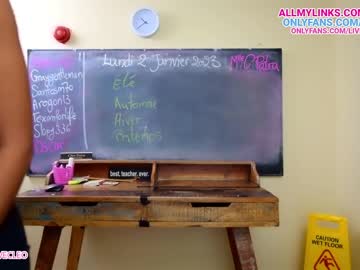 ALLMYLINKS.COM/
ONLYFANS.COM/
ONLYFANS.COM/LIV
Lundi 2 Janvier 2023
Mlle C. Petra
Graygentleman
Santosm70
Aragon13
Texantonife
Sbrg336
Eté
Automne
Hiver
Printemps
best. teacher. ever.
CAUTION
WET FLOOR
ECLEO